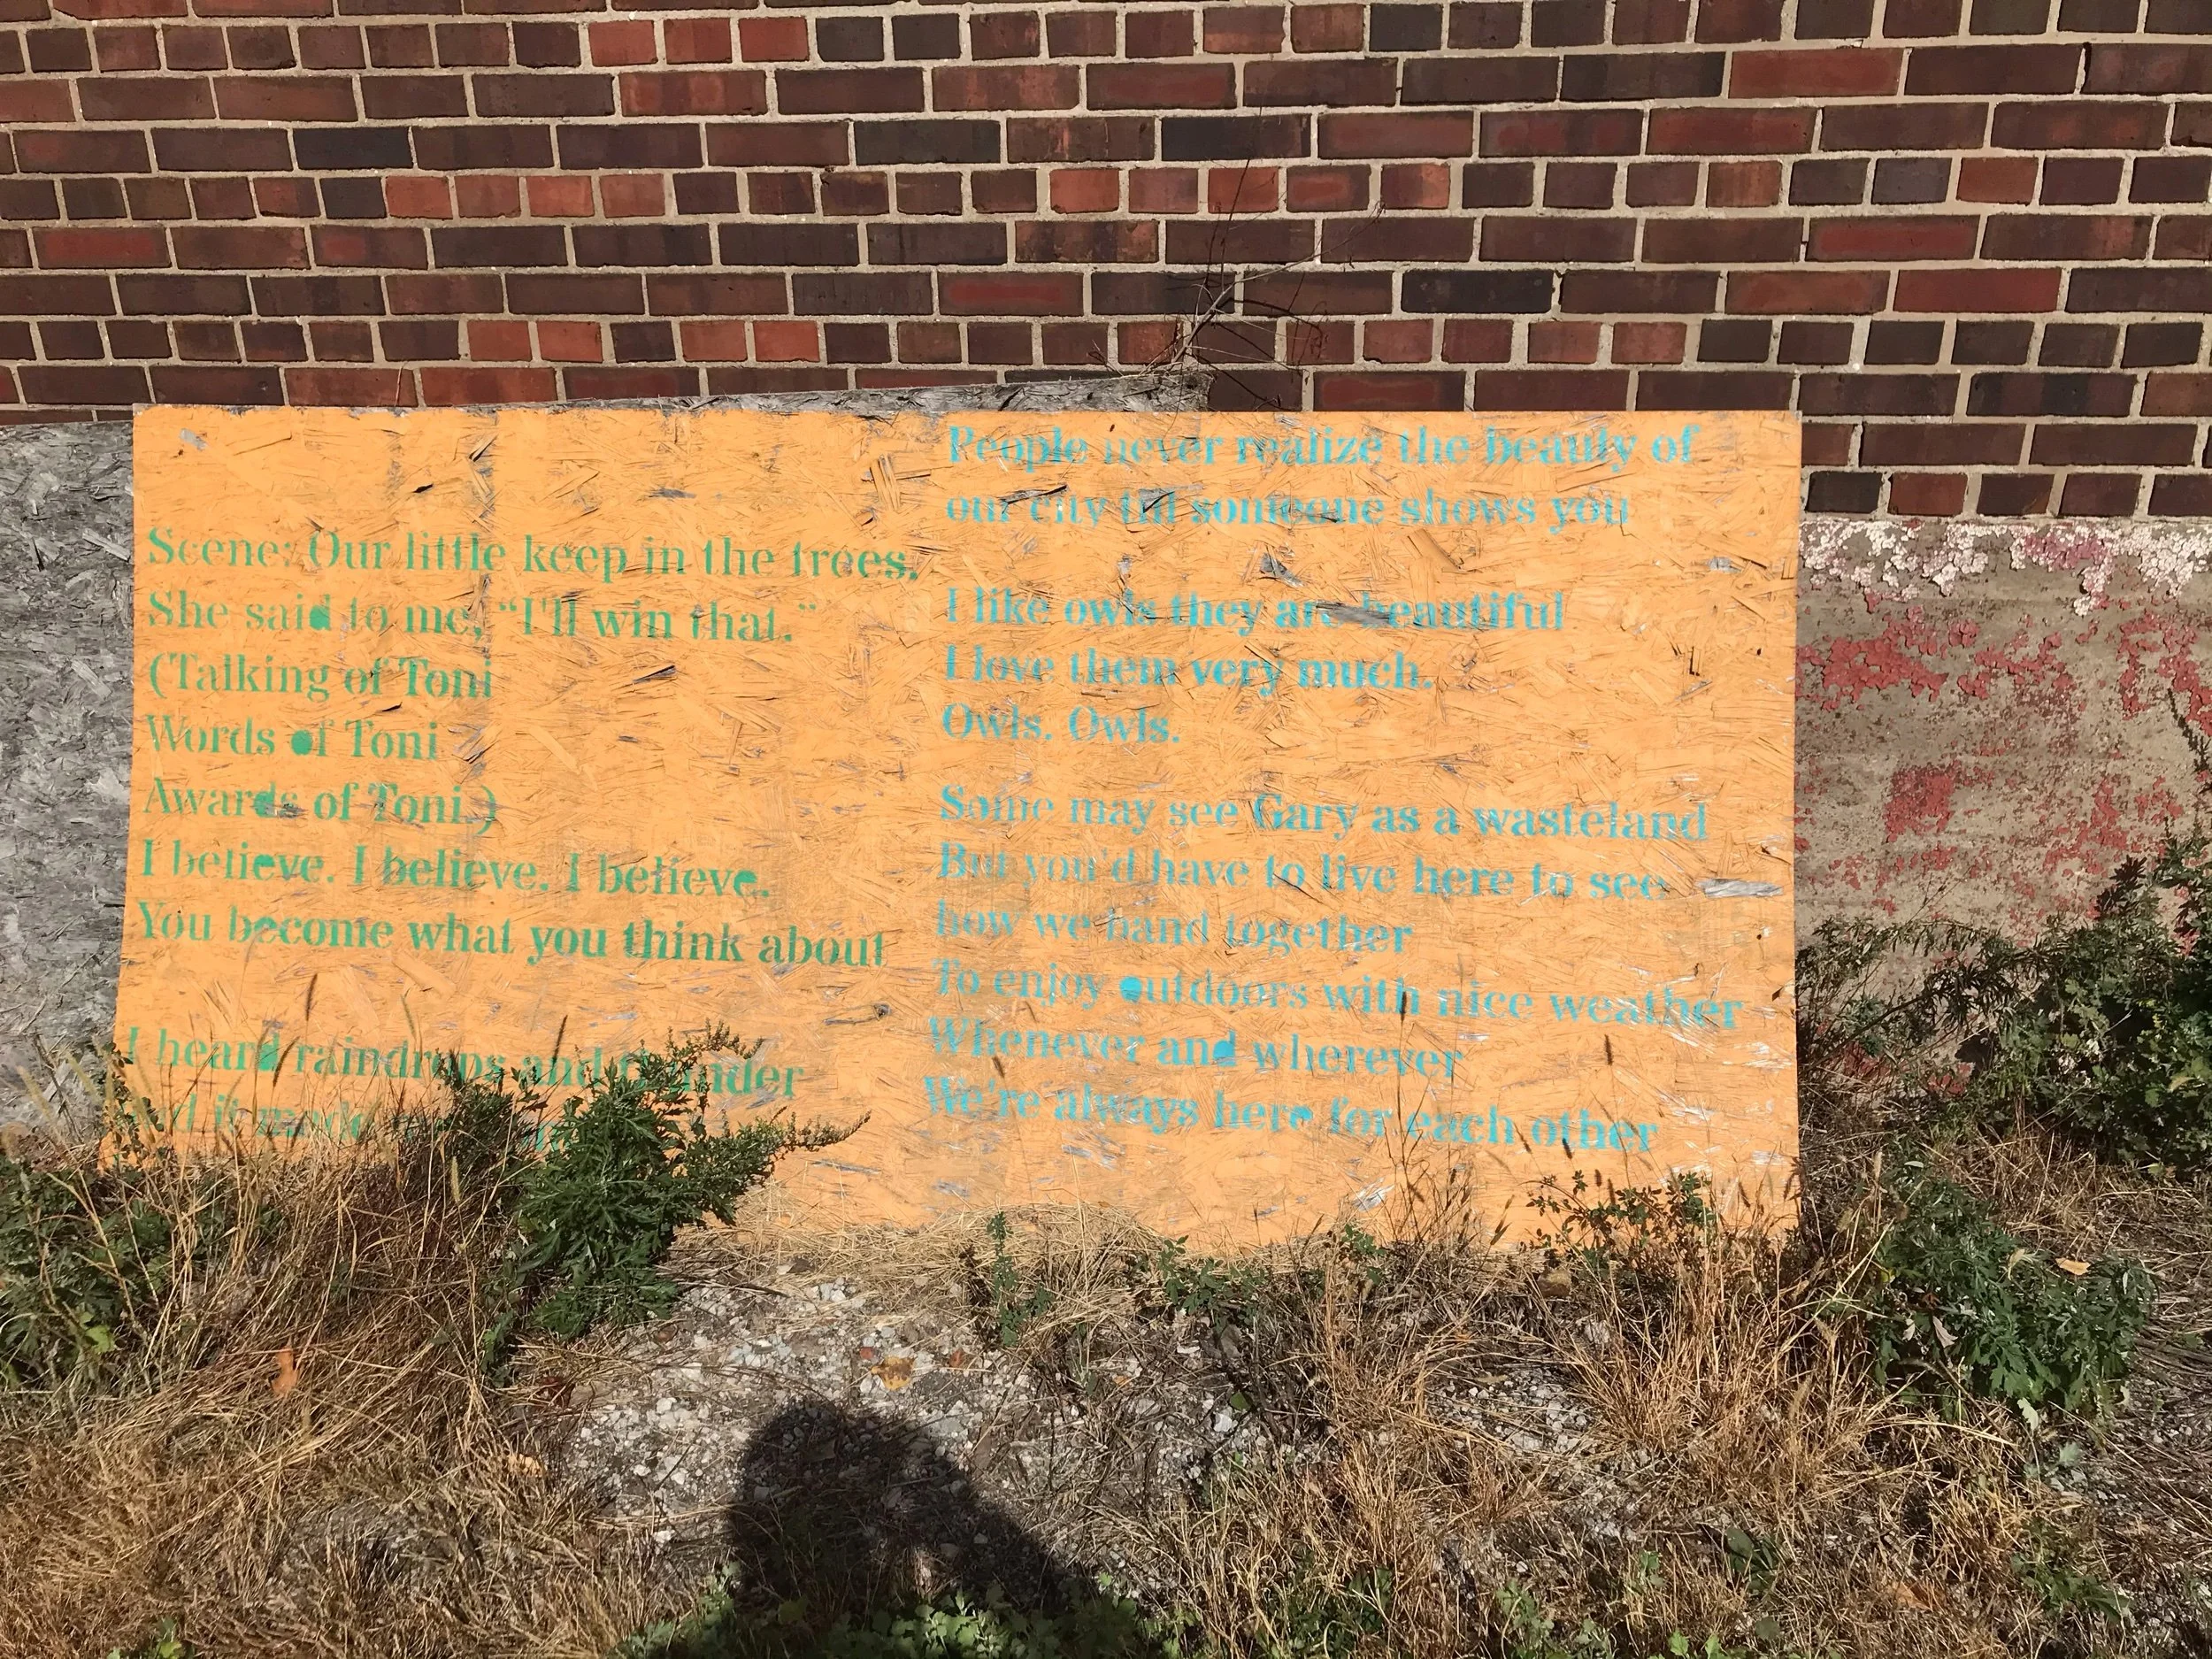 Scene: Our little keep in the trees.
She said to me, “I'll win that.”
(Talking of Toni
Words of Toni
Awards of Toni.)
I believe. I believe. I believe.
You become what you think about
I heard raindrops and thunder
And it made
People never realize the beauty of
our city till someone shows you
I like owls they are beautiful
I love them very much.
Owls. Owls.
Some may see Gary as a wasteland
But you'd have to live here to see
how we band together
To enjoy outdoors with nice weather
Whenever and wherever
We're always here for each other